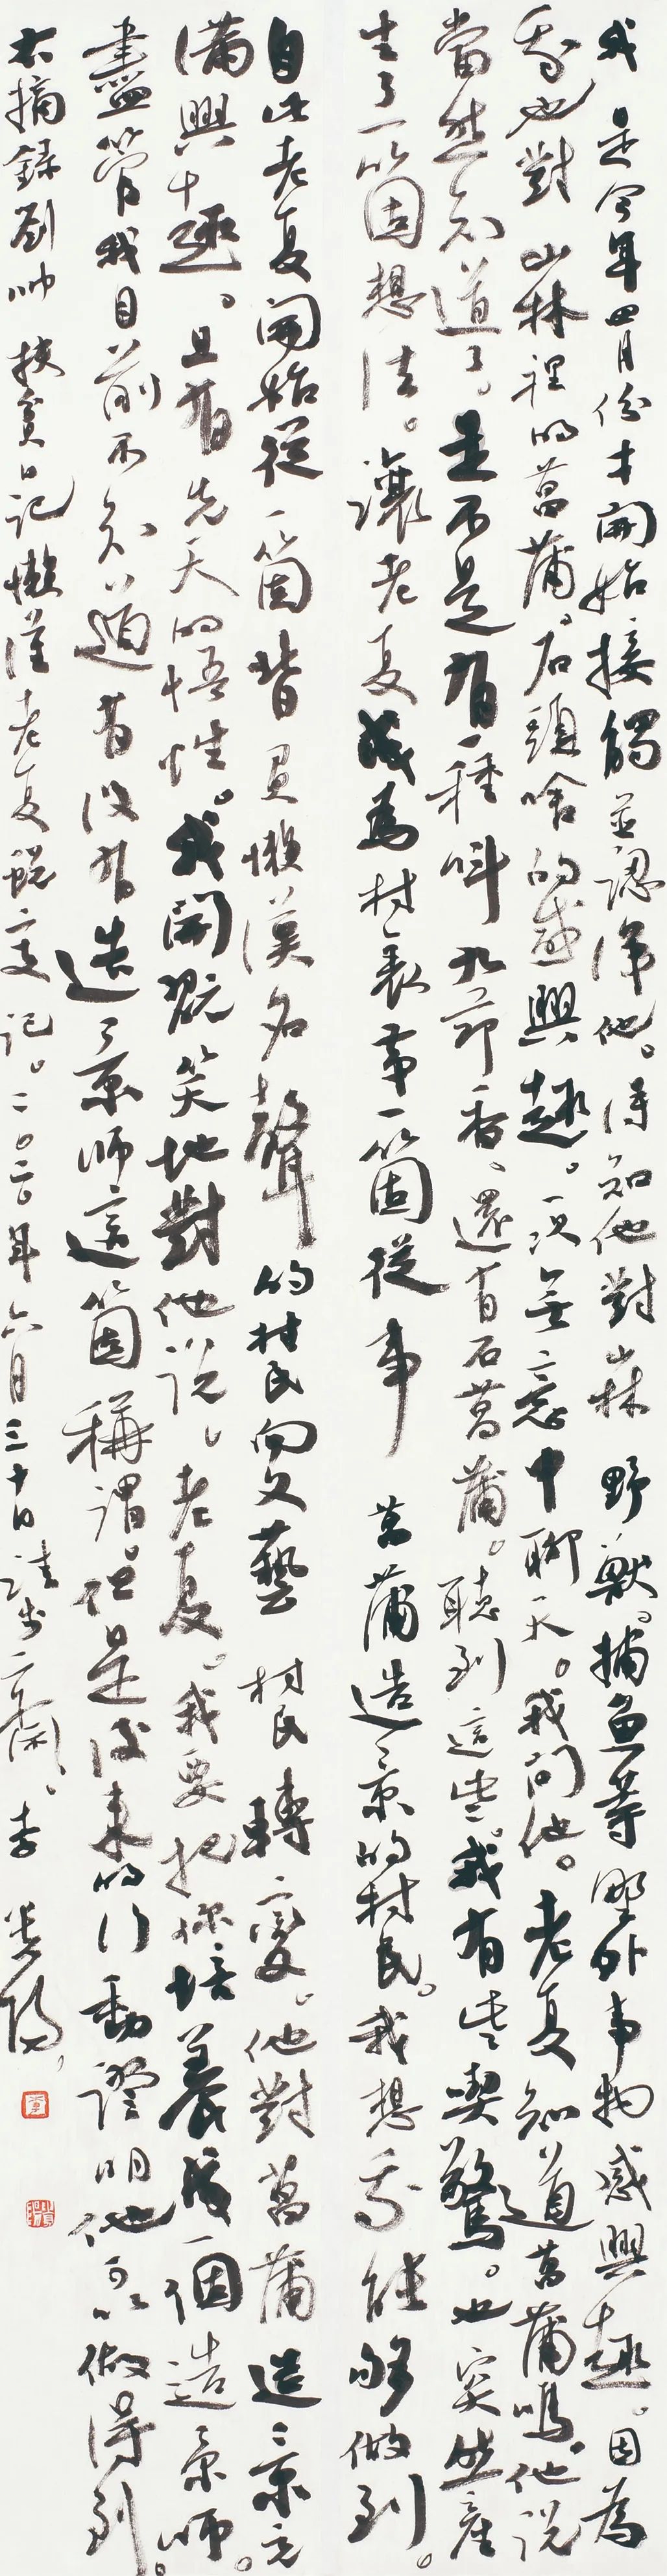 我是今年四月份才開始接觸並認识他。得知他對山林野獸。捕魚等野外事物感興趣。因為
我也對山林裡的菖蒲。石頭啥的感興趣。一次無意中聊天。我问他。老夏知道菖蒲嗎。他説
當然知道了。是不是有一種叫九節香、還有石菖蒲。聽到這些。我有些喫驚。也突然産
生了一箇想法。讓老夏成為村裏第一箇從事菖蒲造景的村民。我想我能够做到。
自此老夏開始從一箇背負懒漢名聲的村民向文藝村民轉變。他對菖蒲造景充
满興趣。且有先天的悟性。我開玩笑地對他说。老夏。我要把你培養成一個造景师。
盡管我目前不知道有没有造景师這箇稱謂。但是後来的行動證明他可以做得到。
右摘録劉帅扶貧日記懒漢老夏蜕变记。二〇二〇年六月三十日 李